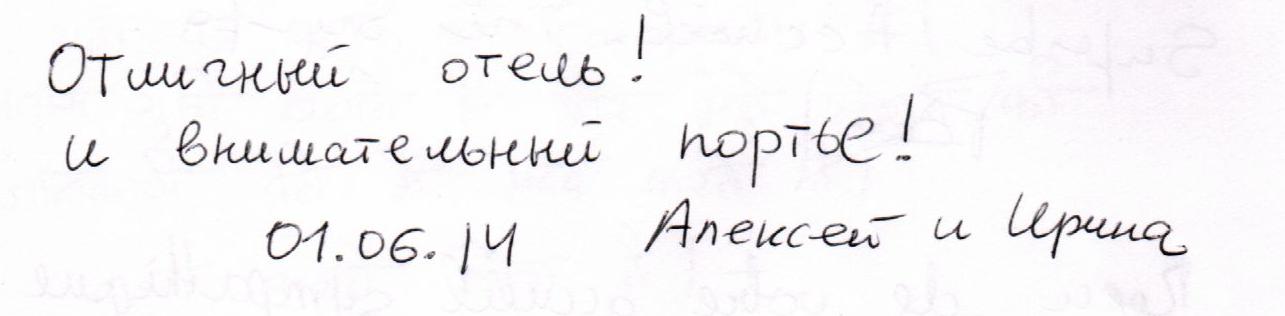 Отличный отель!
и внимательный портье!
01.06.14 Алексей и Ирина